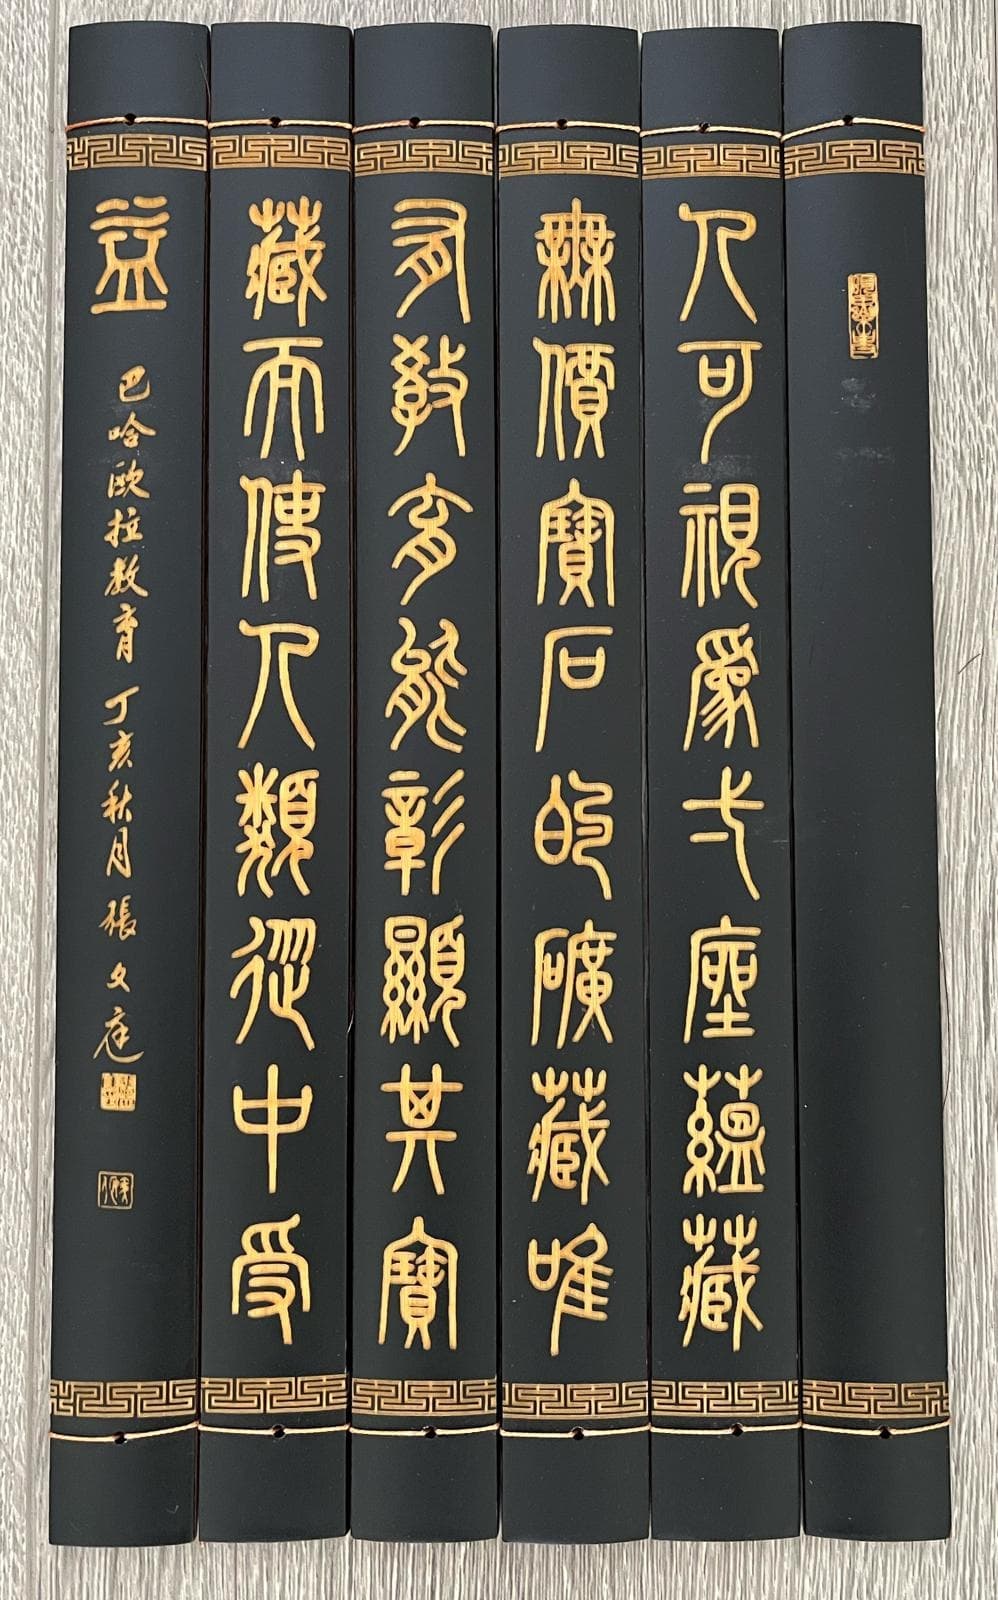 人可視為一座蘊藏
無價寶石的礦藏唯
有教育能彰顯其寶
藏而使人類從中受
益
巴哈歐拉教育 丁亥秋月 張文庭